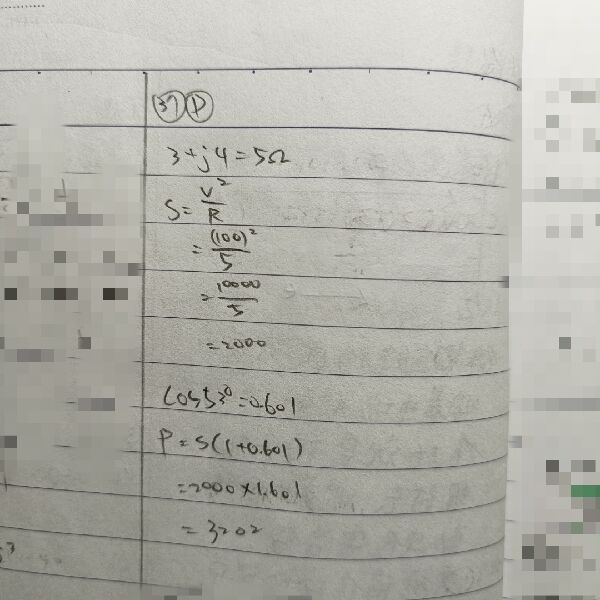 37 D
3+j4=5Ω
S=V²/R
=(100)²/5
=10000/5
=2000
cos53°=0.601
P=S(1+0.601)
=2000×1.601
=3202